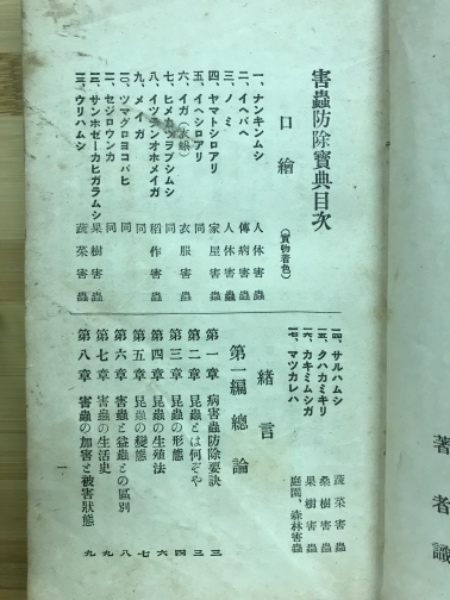 害蟲防除寶典目次
口繪（實物着色）
一、ナンキンムシ 人体害蟲
二、イヘバヘ 傳病害蟲
三、ノミ 人体害蟲
四、ヤマトシロアリ 家屋害蟲
五、イヘシロアリ 同
六、イガ（衣蛾） 衣服害蟲
七、ヒメカツヲブシムシ 同
八、イツテンオホメイガ 稻作害蟲
九、メイガ 同
一〇、ツマグロヨコバヒ 同
一一、セジロウンカ 同
一二、サンホゼーカヒガラムシ 果樹害蟲
一三、ウリハムシ 蔬菜害蟲
一四、サルハムシ 蔬菜害蟲
一五、クハカミキリ 桑樹害蟲
一六、カキミムシガ 果樹害蟲
一七、マツカレハ 庭園、森林害蟲
緒言
第一編 總論
第一章 病害蟲防除要訣 三
第二章 昆蟲とは何ぞや 三
第三章 昆蟲の形態 四
第四章 昆蟲の生殖法 六
第五章 昆蟲の變態 七
第六章 害蟲と益蟲との區別 八
第七章 害蟲の生活史 九
第八章 害蟲の加害と被害狀態 九
一
著者識